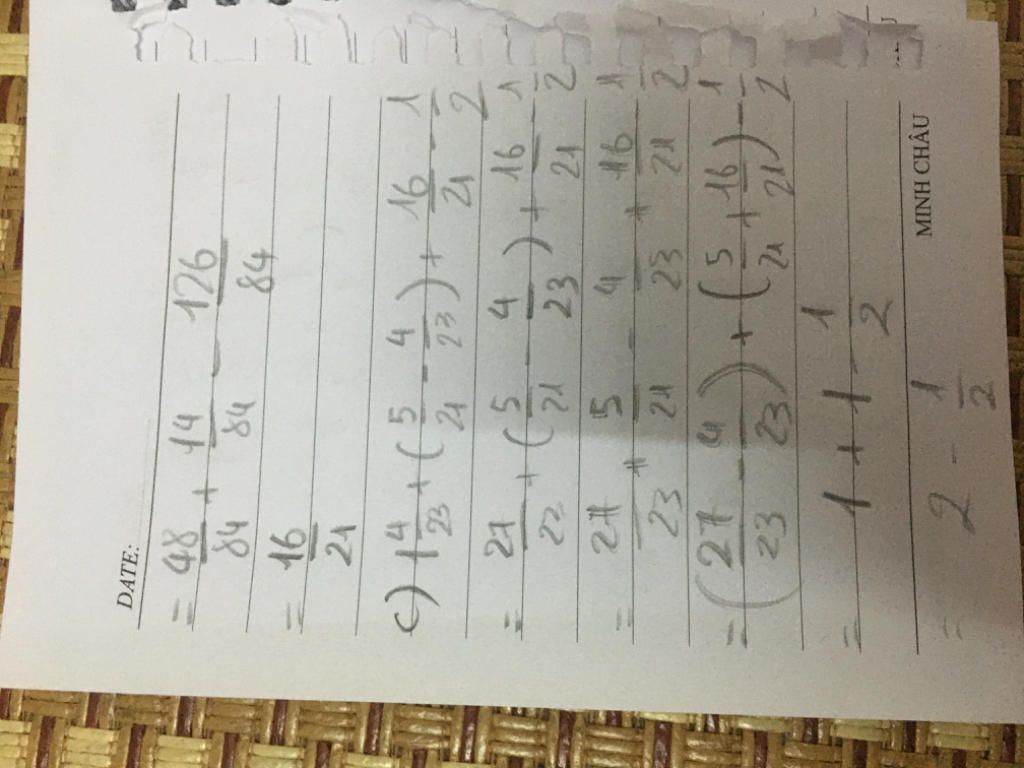 DATE:
= 48/84 + 14/84 - 126/84
= 16/21
c) 1 4/23 + (5/21 - 4/23) + 16/21 - 1/2
= 27/22 + (5/21 - 4/23) + 16/21 - 1/2
= 27/23 + 5/21 - 4/23 + 16/21 - 1/2
= (27/23 - 4/23) + (5/21 + 16/21) - 1/2
= 1 + 1 - 1/2
= 2 - 1/2
MINH CHÂU